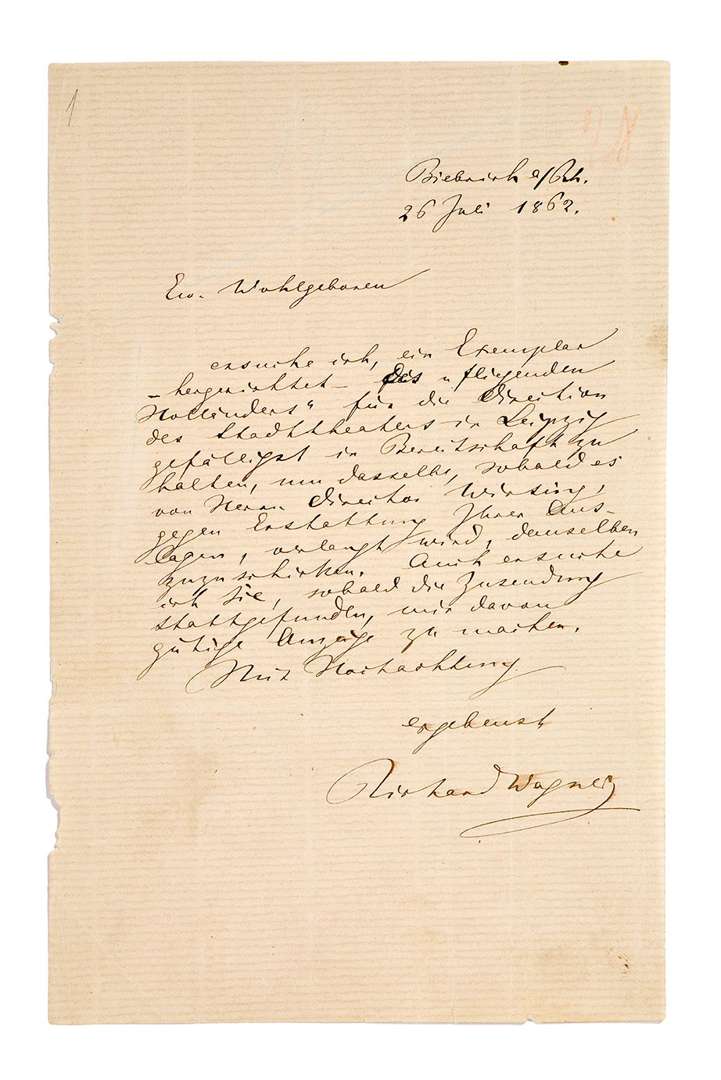 1
Biebrich a/Rh.
26 Juli 1862.
Ew. Wohlgeboren
ersuche ich, ein Exemplar
– hergerichtet – des „fliegenden
Holländers“ für die Direction
des Stadttheaters in Leipzig
gefälligst in Bereitschaft zu
halten, um dasselbe, sobald es
von Herrn Director Wirsing,
gegen Erstattung Ihrer Aus-
lagen, verlangt wird, demselben
zuzuschicken. Auch ersuche
ich Sie, sobald die Zusendung
stattgefunden, mir davon
gütige Anzeige zu machen.
Mit Hochachtung
ergebenst
Richard Wagner